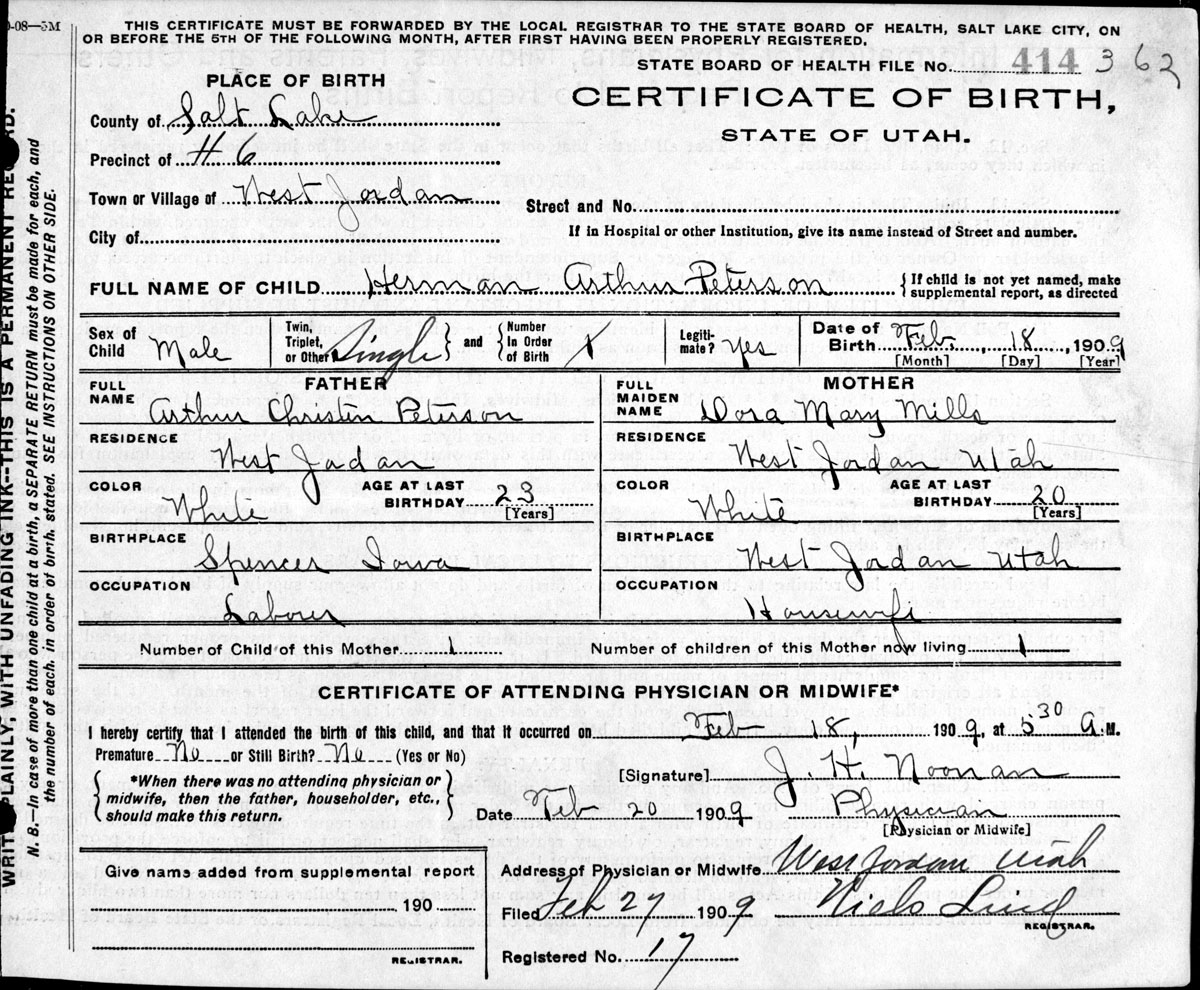 0-08—5M
THIS CERTIFICATE MUST BE FORWARDED BY THE LOCAL REGISTRAR TO THE STATE BOARD OF HEALTH, SALT LAKE CITY, ON
OR BEFORE THE 5TH OF THE FOLLOWING MONTH, AFTER FIRST HAVING BEEN PROPERLY REGISTERED.
STATE BOARD OF HEALTH FILE No. 414 362
PLACE OF BIRTH
CERTIFICATE OF BIRTH,
STATE OF UTAH.
County of Salt Lake
Precinct of # 6
Town or Village of West Jordan
Street and No.
City of
If in Hospital or other Institution, give its name instead of Street and number.
FULL NAME OF CHILD Herman Arthur Peterson { If child is not yet named, make
supplemental report, as directed
Sex of Child Male Twin, Triplet, or Other Single } and { Number In Order of Birth 1 Legiti-mate? Yes Date of Birth Feb 18, 1909
[Month] [Day] [Year]
FATHER
FULL NAME Arthur Christin Peterson
RESIDENCE West Jordan
COLOR White AGE AT LAST BIRTHDAY 23
[Years]
BIRTHPLACE Spencer Iowa
OCCUPATION Labourer
MOTHER
FULL MAIDEN NAME Dora Mary Mills
RESIDENCE West Jordan Utah
COLOR White AGE AT LAST BIRTHDAY 20
[Years]
BIRTHPLACE West Jordan Utah
OCCUPATION Housewife
Number of Child of this Mother 1 Number of children of this Mother now living 1
CERTIFICATE OF ATTENDING PHYSICIAN OR MIDWIFE*
I hereby certify that I attended the birth of this child, and that it occurred on Feb 18, 1909, at 5 30 A.M.
Premature No or Still Birth? No (Yes or No)
[Signature] J. H. Noonan
{ *When there was no attending physician or
midwife, then the father, householder, etc.,
should make this return. }
Date Feb 20 1909 Physician
[Physician or Midwife]
Give name added from supplemental report
190
REGISTRAR.
Address of Physician or Midwife West Jordan Utah
Filed Feb 27 1909 Niels Lind
REGISTRAR.
Registered No. 17
PLAINLY, WITH UNFADING INK--THIS IS A PERMANENT
N. B.—In case of more than one child at a birth, a SEPARATE RETURN must be made for each, and
the number of each, in order of birth, stated. SEE INSTRUCTIONS ON OTHER SIDE.